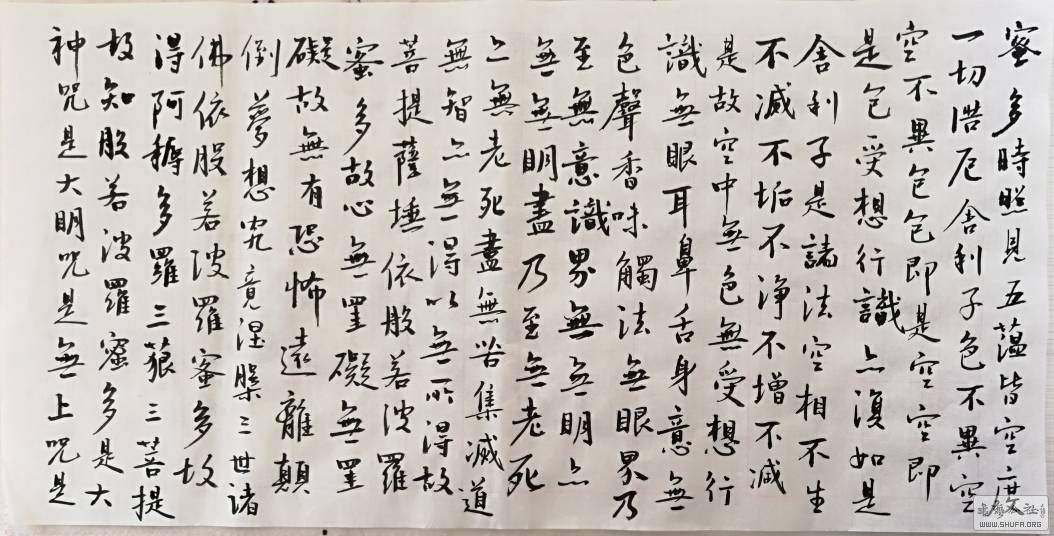 蜜多時照見五蕴皆空度
一切浩厄舍利子色不異空
空不異色色即是空空即
是色受想行識亦復如是
舍利子是諸法空相不生
不滅不垢不净不增不减
是故空中無色無受想行
識無眼耳鼻舌身意無
色聲香味觸法無眼界乃
至無意識界無無明亦
無無明盡乃至無老死
亦無老死盡無苦集滅道
無智亦無得以無所得故
菩提薩埵依般若波羅
蜜多故心無罣礙無罣
礙故無有恐怖遠離顛
倒夢想究竟涅槃三世諸
佛依般若波羅蜜多故
得阿耨多羅三藐三菩提
故知般若波羅蜜多是大
神咒是大明咒是無上咒是
WWW.SHUFA.ORG